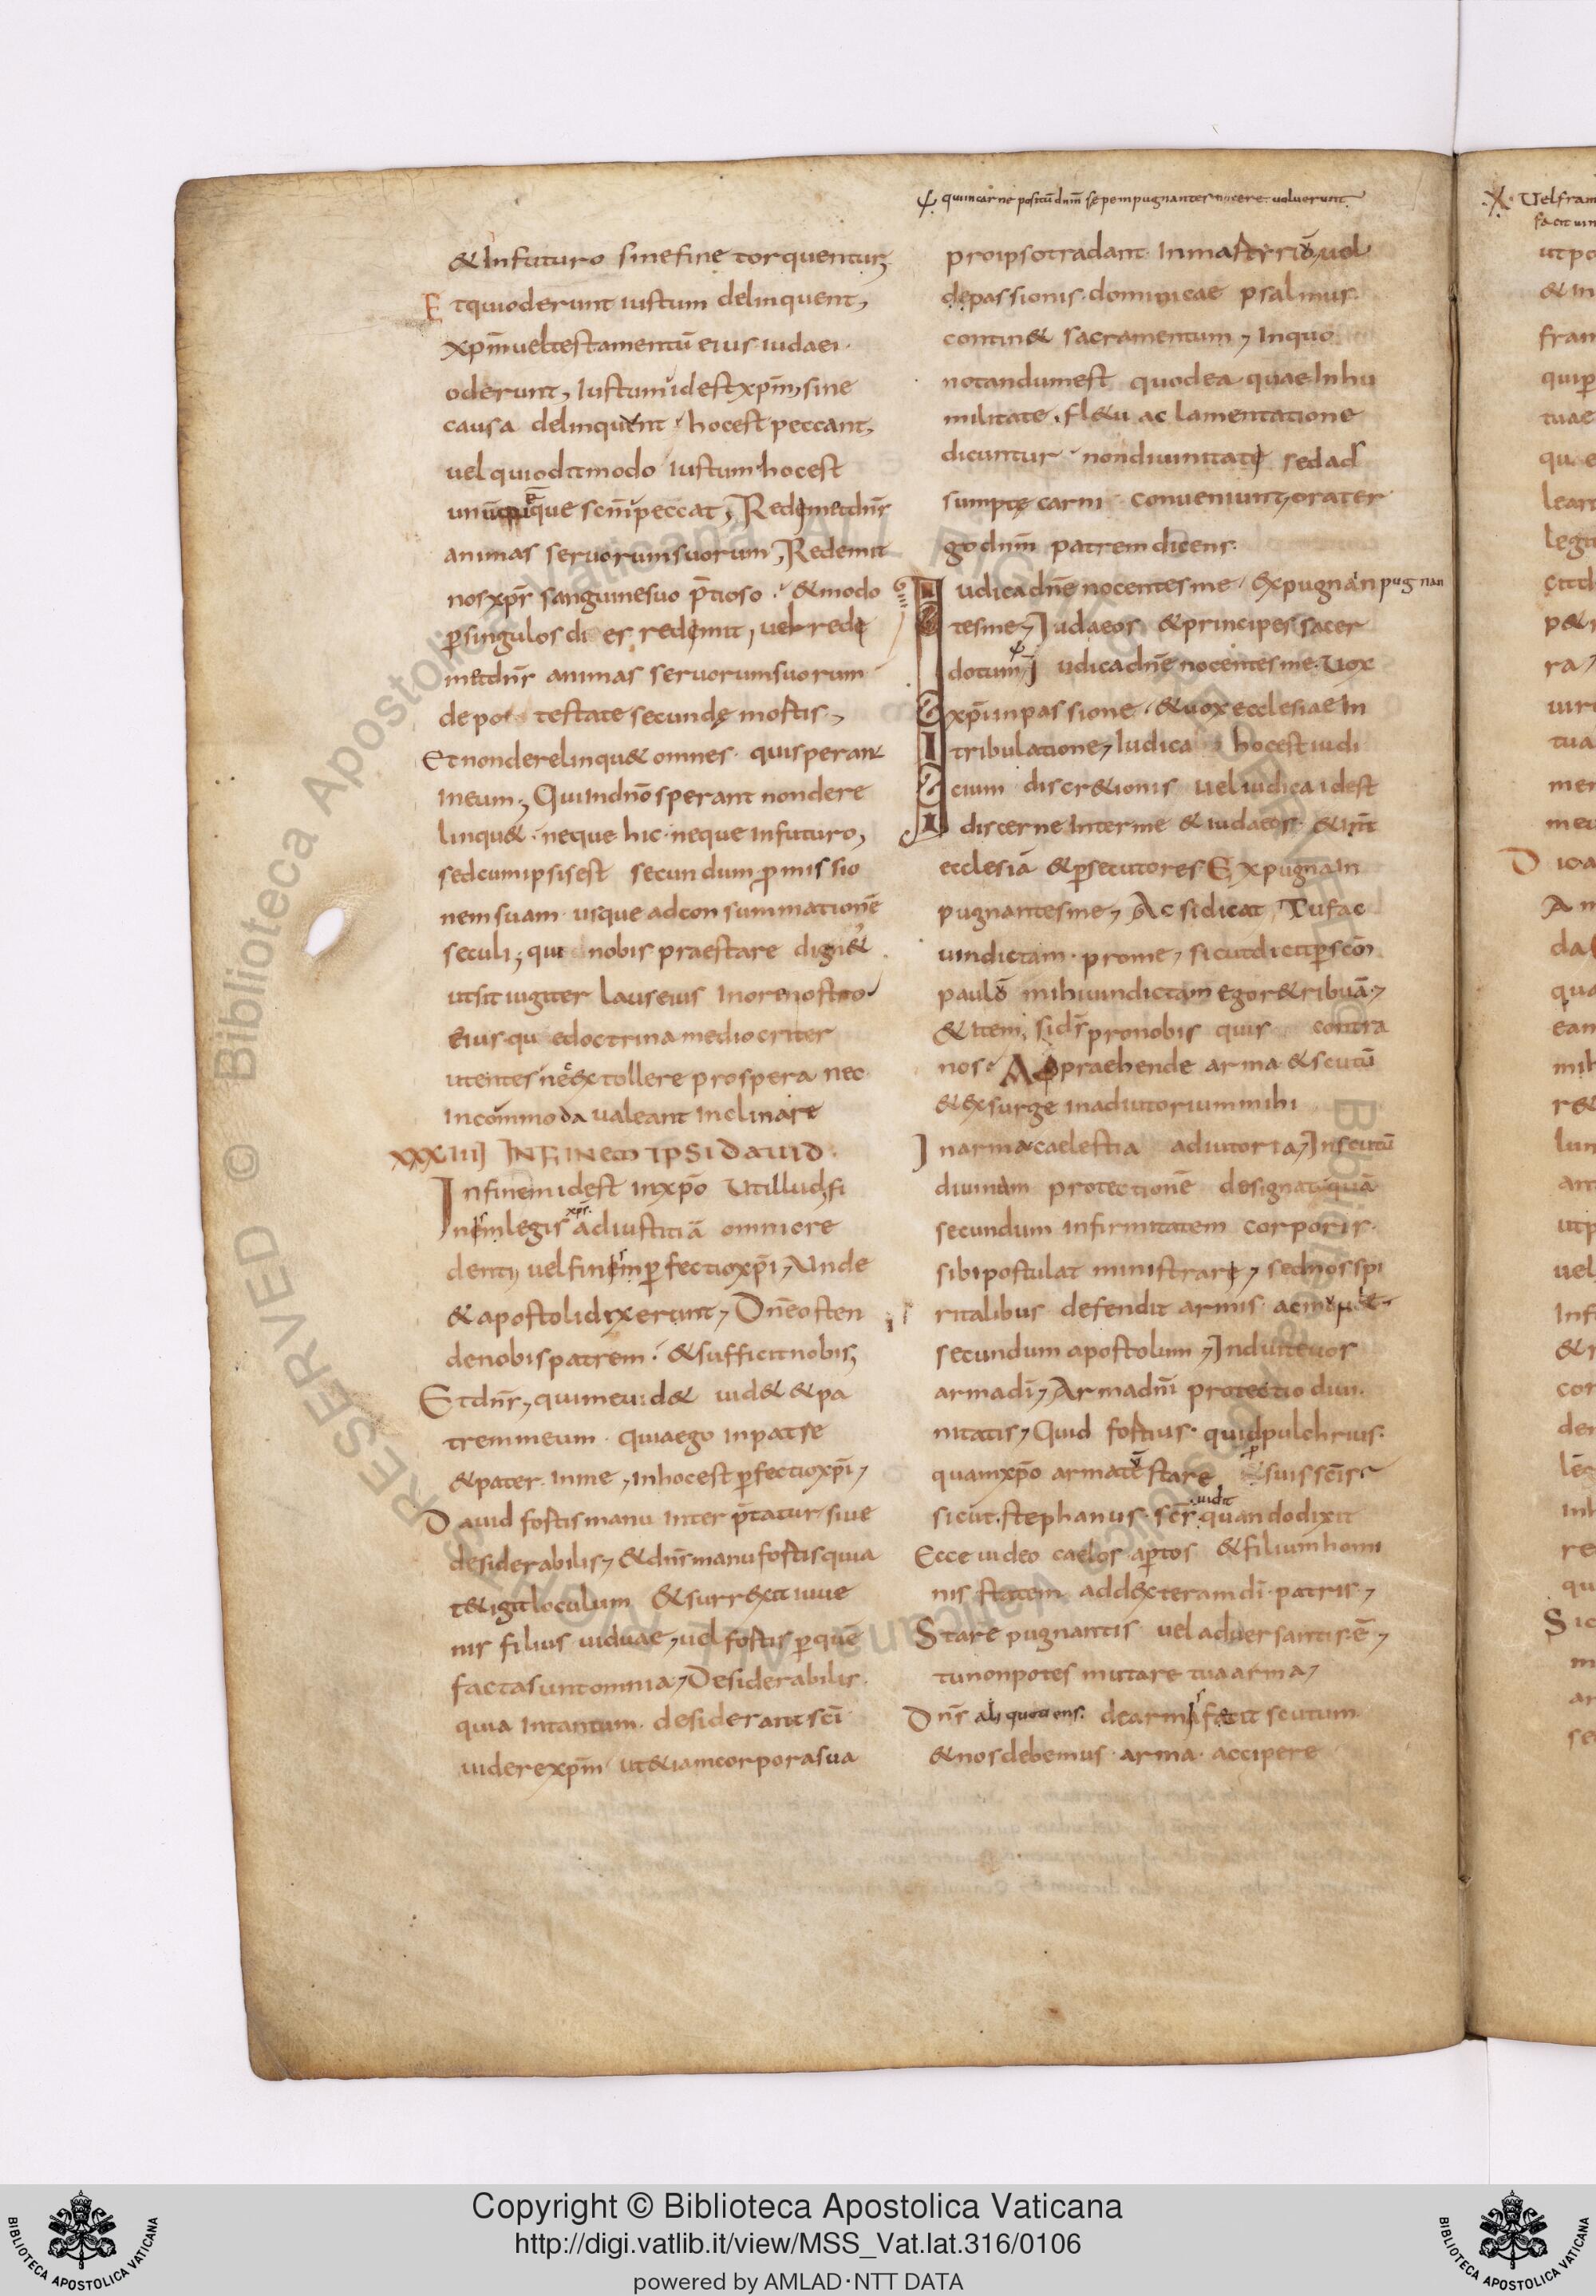 & In futuro sine fine torquentur;
Et qui oderunt iustum delinquent,
xpm̄ uel testamentū eius iudaei
oderunt, Iustum idest xpm̄, sine
causa delinquent hocest peccant,
uel qui odit modo iustum hocest
que scm̄ peccat, Redemet dn̄s
animas seruorum suorum, Redemit
nos xp̄s sanguine suo p̄tioso & modo
ꝑ singulos di es redemit, uel rede
met dn̄s animas seruorum suorum
de po testate secundę mortis,
Et non derelinqu& omnes qui speran
In eum; Qui In dnō sperant non dere
linqu& neque hic neque In futuro,
sed cum ipsis est secundum promissio
nem suam usque ad consummationē
seculi; qui nobis praestare dign&
ut sit iugiter laus eius In ore nostro
eius qu e doctrina mediocriter
utentes ne extollere prospera nec
Incommoda ualeant Inclinare
XXXIIII IN FINEM IPSI DAUID
In finem idest in xp̄o Ut illud, fi
nis legis xp̄s ad iustitiā omni cre
denti, uel finis ꝑfectio xp̄i, Unde
& apostoli dixerunt, Dnē osten
de nobis patrem & sufficit nobis;
Et dn̄s, qui me uid& uid& & pa
trem meum quia ego In patre
& pater In me, In hoc est ꝑfectio xp̄i,
Dauid fortis manu Inter p̄tatur siue
desiderabilis, & dn̄s manu fortis quia
t&igit loculum & surrexit iuue
nis filius uiduae, uel fortis ꝑ quē
facta sunt omnia, Desiderabilis
quia In tantum desiderant scī
uidere xpm̄ ut &iam corpora sua
qui in carne positū dnm̄ sępe inpugnantes nocere uoluerunt
pro ipso tradant In martyriō, uel
de passionis dominicae psalmus
contin& sacramentum, In quo
notandum est quod ea quae In hu
militate fl&u ac lamentatione
dicuntur non diuinitati sed ad
sumptę carni conueniunt, orat er
go dnm̄ patrem dicens
Iudica dnē nocentes me expugnan pugnan
tes me, Iudaeos & principes sacer
dotum, Iudica dnē nocentes me Uox
xp̄i in passione & uox ecclesiae In
tribulatione, Iudica hocest iudi
cium discr&ionis uel iudica idest
discerne Inter me & iudaeos & int̄
ecclesiā & ꝑsecutores Expugna In
pugnantes me, Ac si dicat Tu fac
uindictam pro me, sicut dicit ꝑ scōm
paulō mihi uindictam ego r&ribuā,
& item, si dī pro nobis quis contra
nos Appraehende arma & scutū
& exsurge in adiutorium mihi
In arma caelestia adiutoria, In scutū
diuinam protectionē designat quā
secundum infirmitatem corporis
sibi postulat ministrari, sed nos spi
ritalibus defendit armis
secundum apostolum, Induite uos
arma dī, Arma dn̄i protectio diui
nitatis, Quid fortius quid pulchrius
quam xp̄o armatō stare suis scīs
sicut stephanus scs̄ uidit quando dixit
Ecce uideo caelos aꝑtos & filium homi
nis statem ad dexteram dī patris,
Stare pugnantis uel aduersantis ē,
tu non potes mutare tua arma,
Dn̄s aliquotiens de armis facit scutum
& nos debemus arma accipere
Copyright © Biblioteca Apostolica Vaticana
http://digi.vatlib.it/view/MSS_Vat.lat.316/0106
powered by AMLAD·NTT DATA